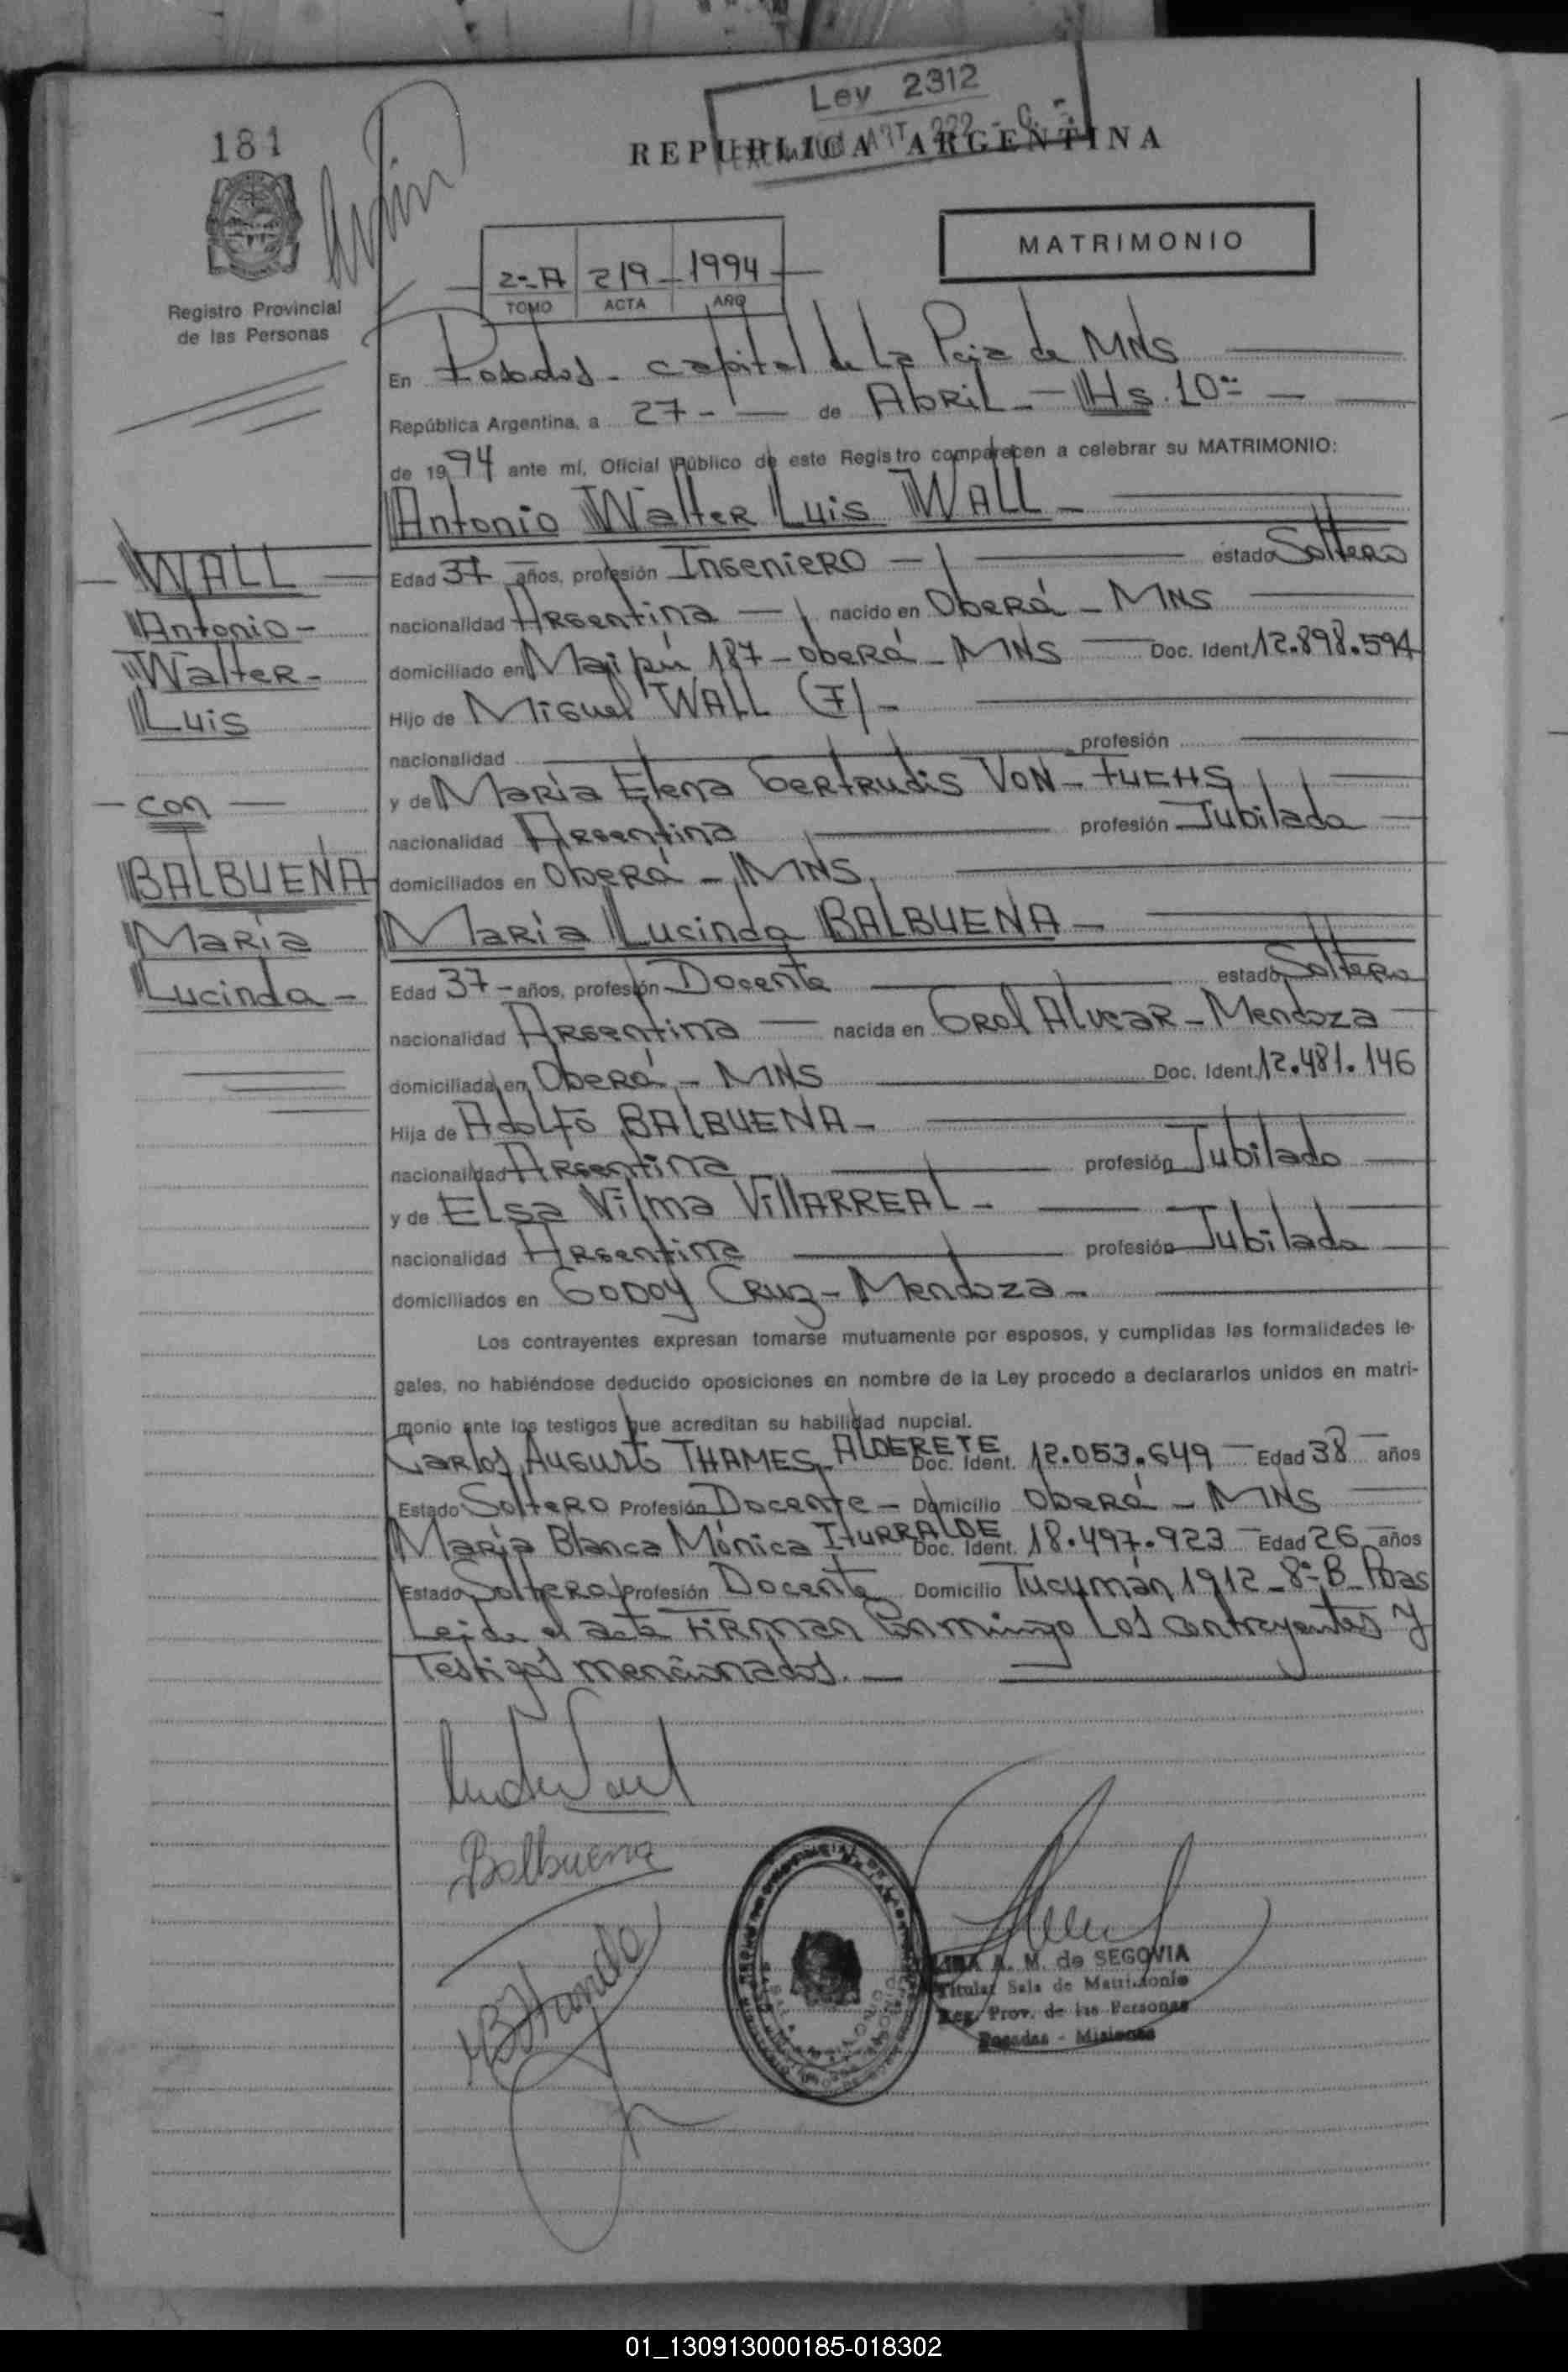 Ley 2312
181
REPUBLICA ARGENTINA
MATRIMONIO
2º A 219 1994
TOMO ACTA AÑO
Registro Provincial
de las Personas
En Posadas - capital de La Pcia de MNS
República Argentina, a 27 - de Abril - Hs. 10
de 1994 ante mí, Oficial Público de este Registro comparecen a celebrar su MATRIMONIO:
Antonio Walter Luis WALL -
WALL
Antonio -
Walter -
Luis
- con -
BALBUENA
María
Lucinda -
Edad 37 años, profesión Ingeniero - estado Soltero
nacionalidad Argentina - nacido en Oberá - MNS
domiciliado en Maipú 187 - Oberá - MNS Doc. Ident. 12.898.594
Hijo de Miguel WALL (F) -
nacionalidad profesión
y de María Elena Gertrudis VON - FUCHS
nacionalidad Argentina profesión Jubilada
domiciliados en Oberá - MNS.
María Lucinda BALBUENA -
Edad 37 - años, profesión Docente estado Soltera
nacionalidad Argentina - nacida en Gral Alvear - Mendoza
domiciliada en Oberá - MNS Doc. Ident. 12.481.146
Hija de Adolfo BALBUENA -
nacionalidad Argentina profesión Jubilado
y de Elsa Vilma VILLARREAL -
nacionalidad Argentina profesión Jubilada
domiciliados en GODOY CRUZ - Mendoza -
Los contrayentes expresan tomarse mutuamente por esposos, y cumplidas las formalidades le-
gales, no habiéndose deducido oposiciones en nombre de la Ley procedo a declararlos unidos en matri-
monio ante los testigos que acreditan su habilidad nupcial.
Carlos Augusto THAMES - ALDERETE Doc. Ident. 12.053.649 - Edad 38 años
Estado Soltero Profesión Docente - Domicilio Oberá - MNS
María Blanca Mónica ITURRALDE Doc. Ident. 18.497.923 - Edad 26 años
Estado Soltera Profesión Docente Domicilio Tucumán 1912 - 8º B - Pdas
Leida el acta FIRMAN Conmingo Los contrayentes y
Testigos mencionados. -
Balbuena
LIRA A. M. de SEGOVIA
Titular Sala de Matrimonio
Reg. Prov. de las Personas
Posadas - Misiones
01_130913000185-018302